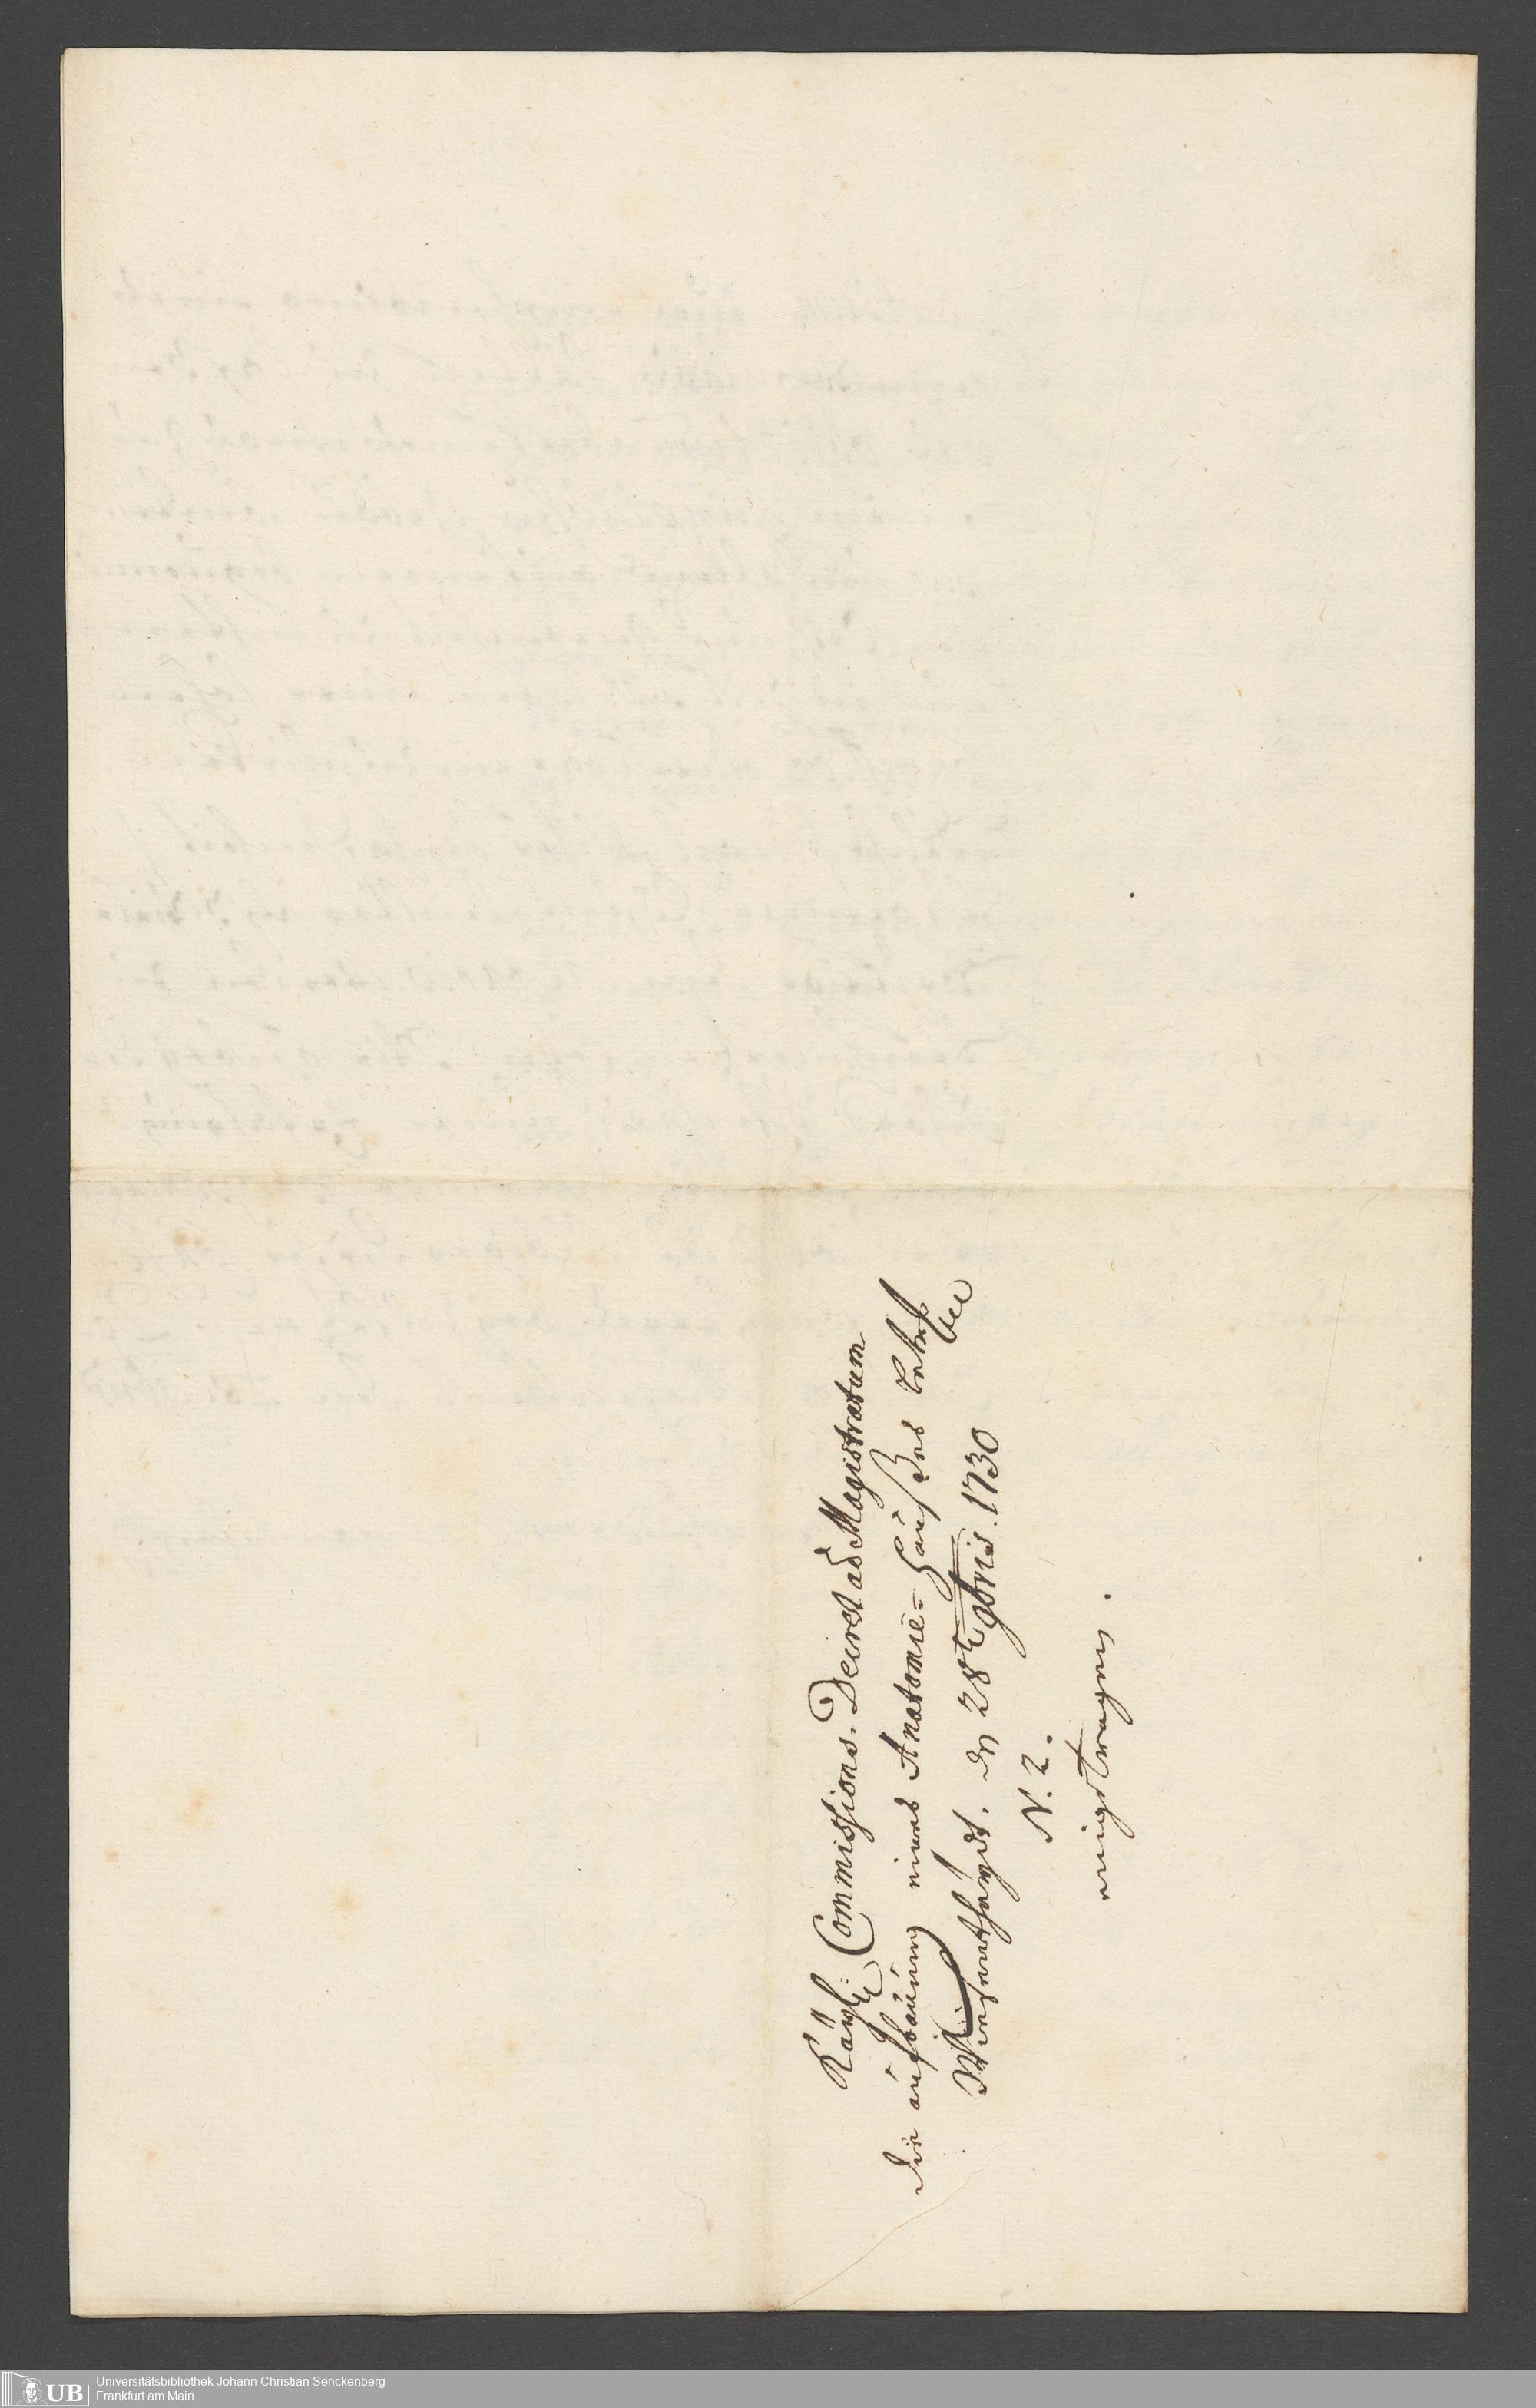 Käyßl: Commissions-Decret ad Magistratum
die auffbauung eines Anatomie-Haußes betreff
den 28t 9bris. 1730
N. 2.
eingetragen.
UB
Universitätsbibliothek Johann Christian Senckenberg
Frankfurt am Main